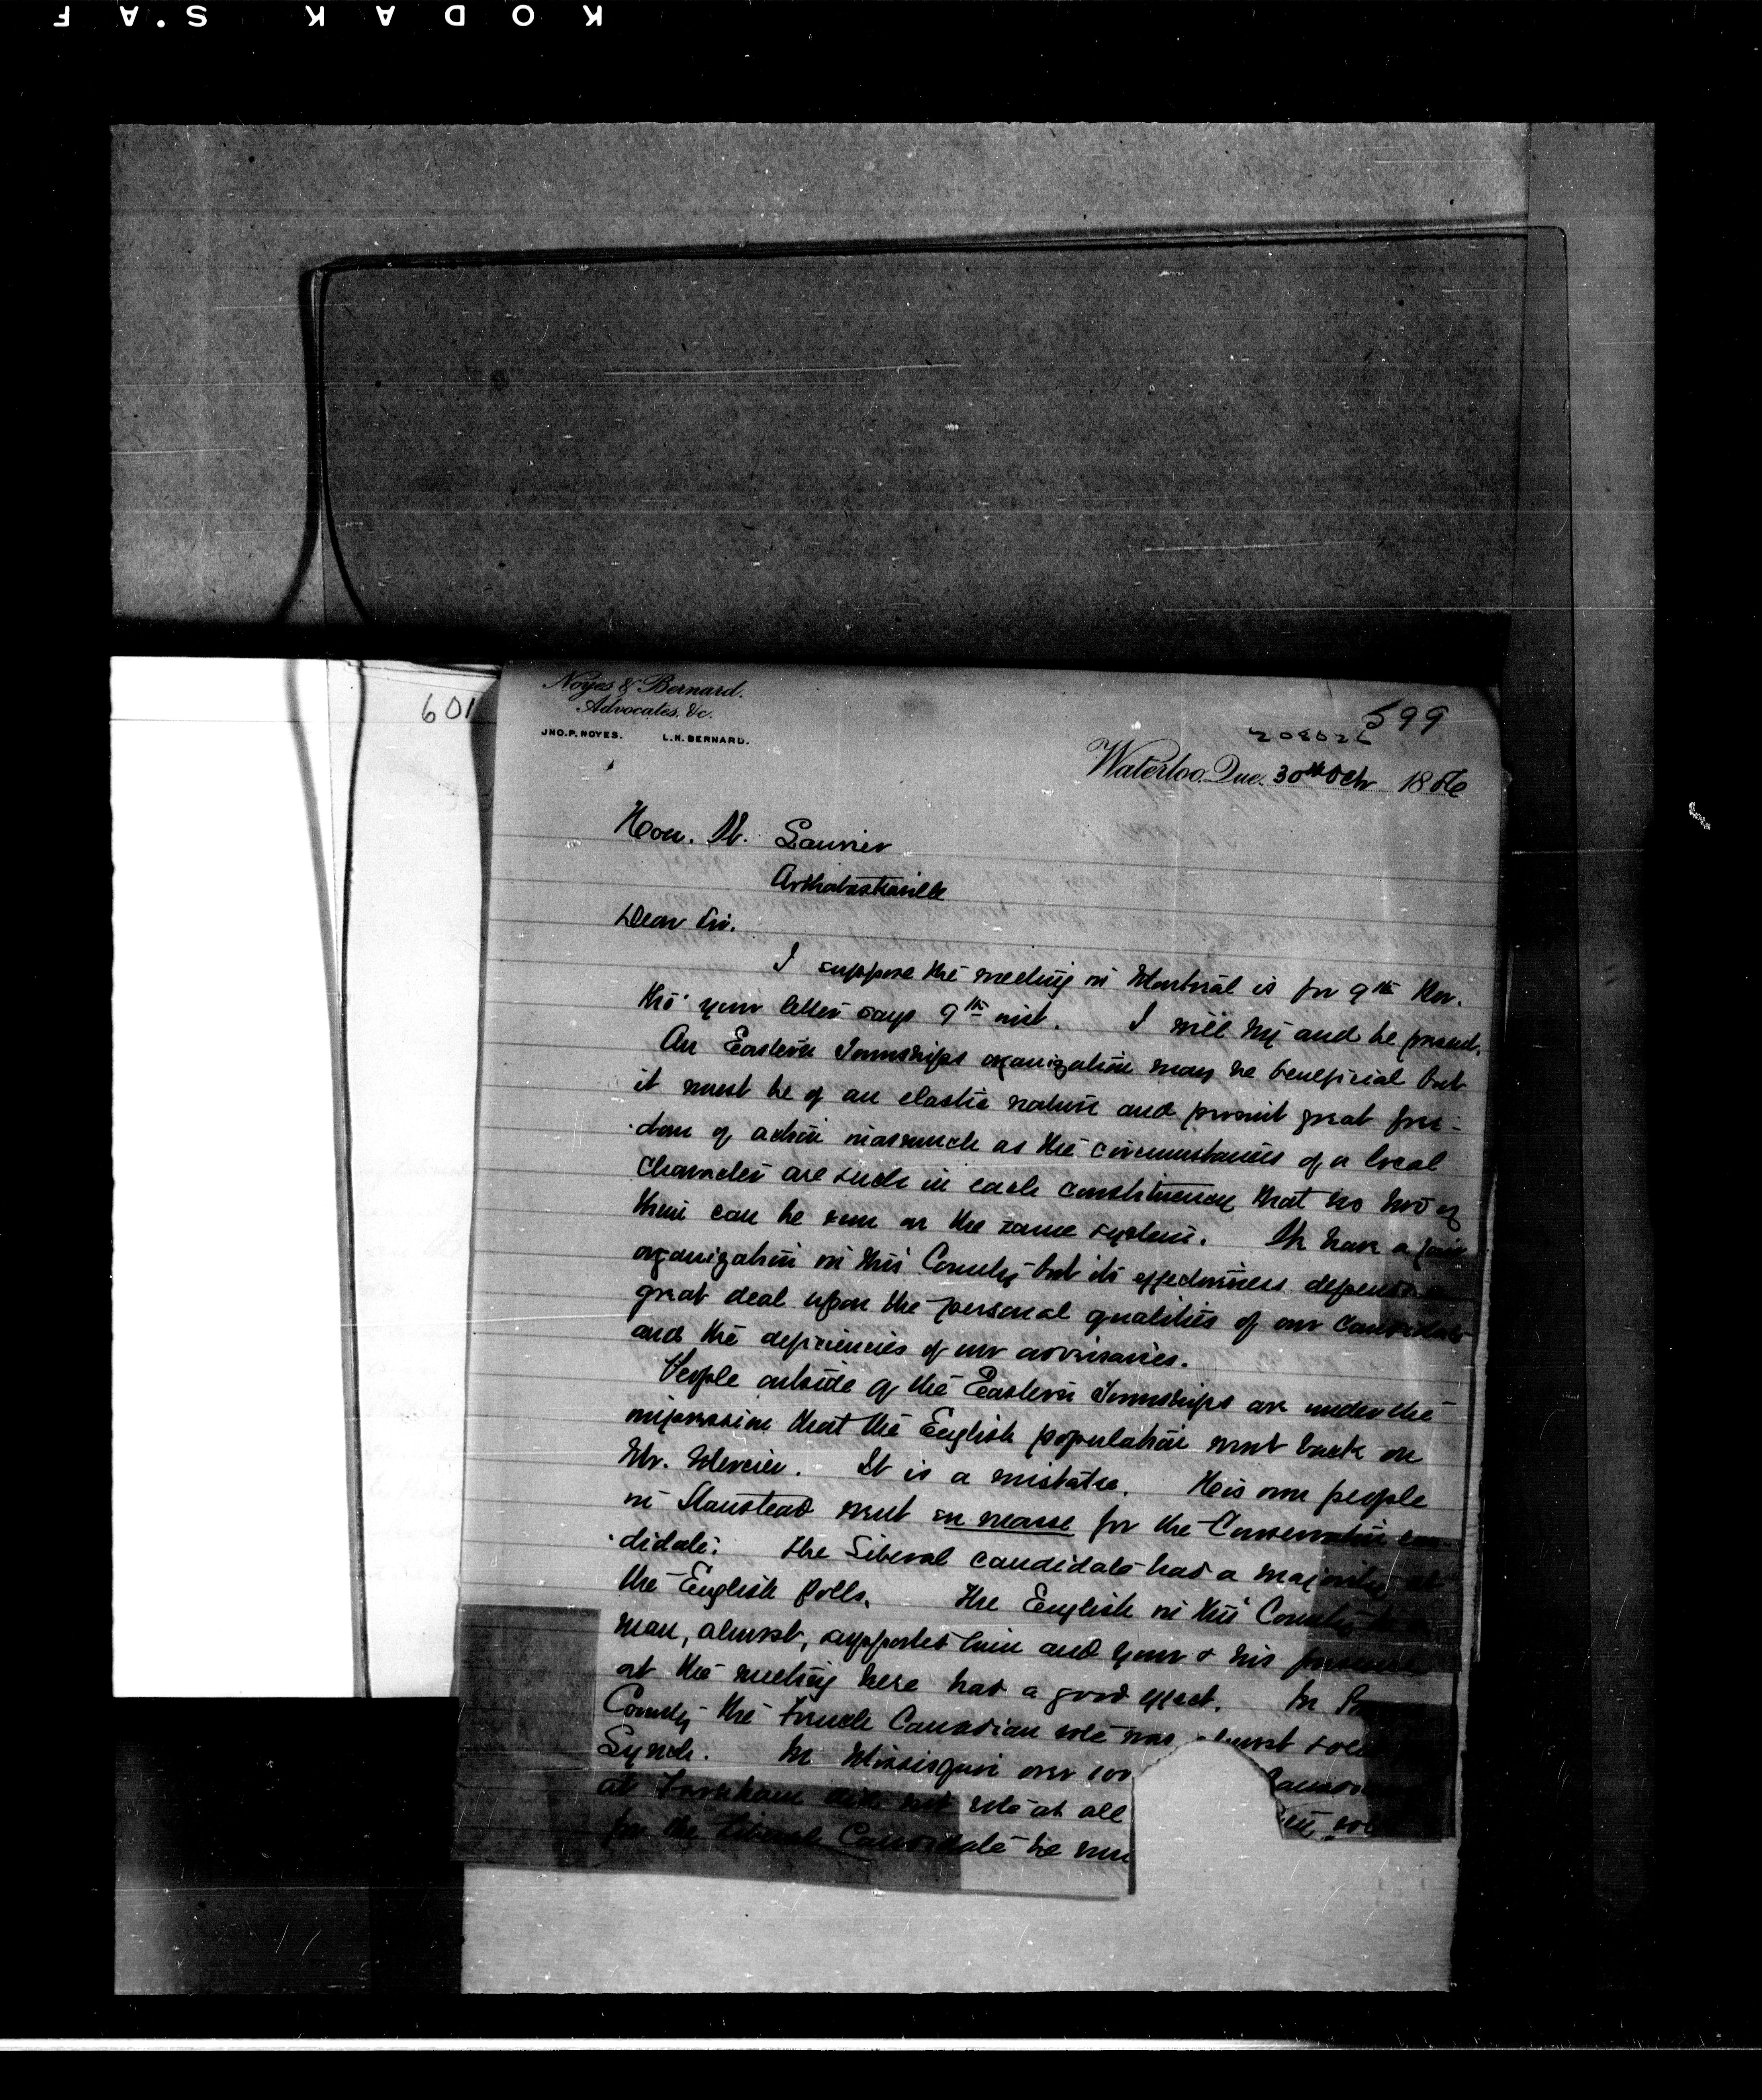 KODAK S.AF
601
Noyes & Bernard.
Advocates, &c.
JNO. P. NOYES. L. N. BERNARD.
599
208026
Waterloo, Que. 30th Oct 1886
Hon. W. Laurier
Arthabaskaville
Dear Sir.
I suppose the meeting in Montreal is for 9th Nov.
tho' your letter says 9th inst. I will try and be present.
An Eastern Townships organization may be beneficial but
it must be of an elastic nature and permit great free-
dom of action inasmuch as the circumstances of a local
character are such in each constituency that no two of
them can be run on the same system. We have a fair
organization in this County but its effectiveness depends a
great deal upon the personal qualities of our candidate
and the deficiencies of our adversaries.
People outside of the Eastern Townships are under the
impression that the English population went back on
Mr. Mercier. It is a mistake. His own people
in Stanstead went en masse for the Conservative can-
didate. The Liberal candidate had a majority at
the English polls. The English in this County to a
man, almost, supported him and your & his presence
at the meeting here had a good effect. In
County the French Canadian vote was almost solid
Lynch. In Missisquoi over 100
at Farnham did not vote at all
for the Liberal Candidate he